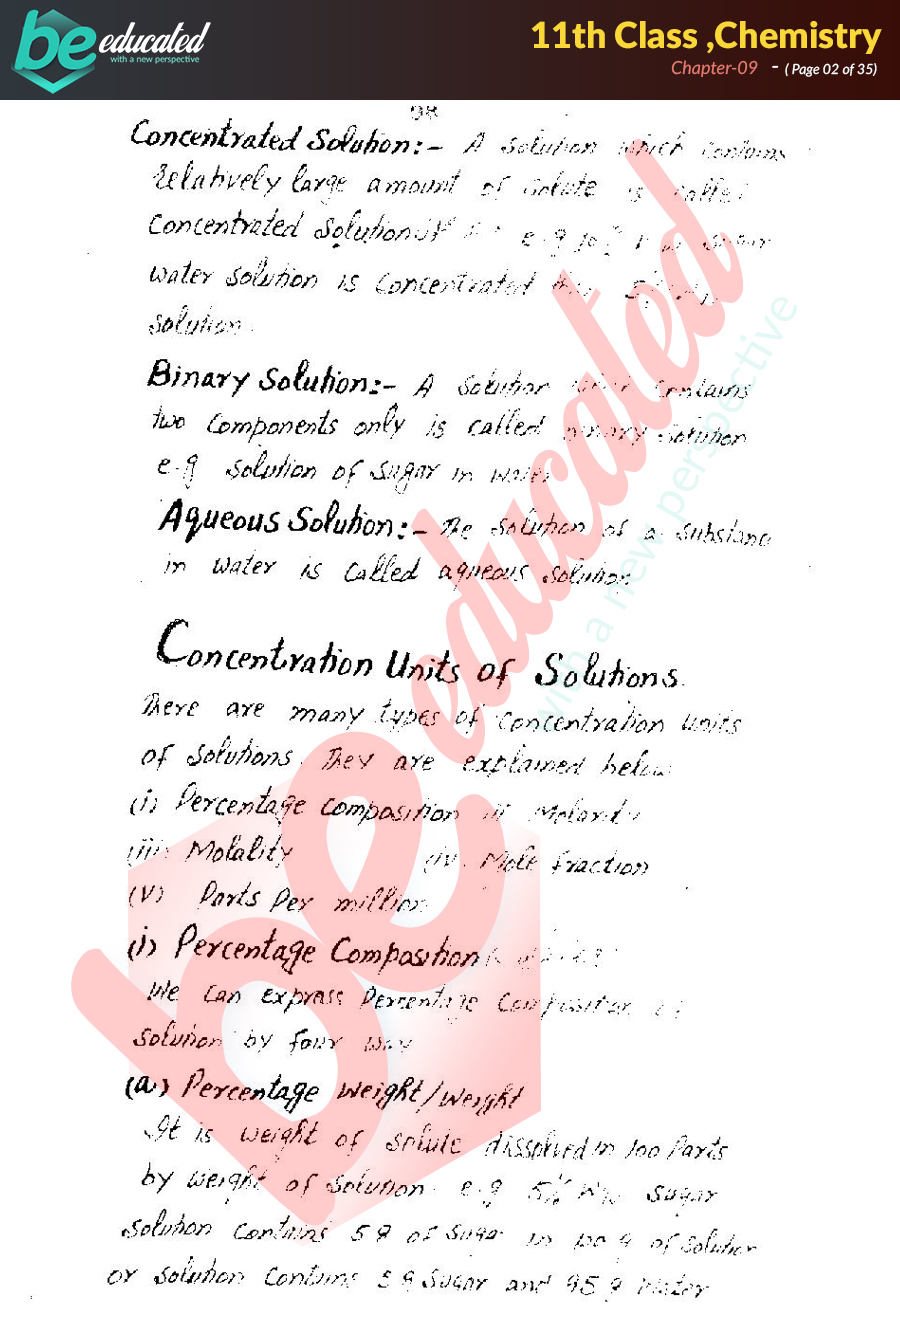 be educated
with a new perspective
11th Class ,Chemistry
Chapter-09 - ( Page 02 of 35)
98
Concentrated Solution:- A solution which contains
relatively large amount of solute is called
Concentrated solution e.g 10% sugar
water solution is concentrated than 5%
solution.
Binary Solution:- A solution which contains
two components only is called binary solution
e.g solution of sugar in water
Aqueous Solution:- The solution of a substance
in water is called aqueous solution
Concentration Units of Solutions.
There are many types of concentration units
of solutions. They are explained below
(i) Percentage composition ii Molarity
(iii) Molality (iv) Mole fraction
(v) Parts Per million
(i) Percentage Composition
We can express Percentage Composition of
solution by four way
(a) Percentage weight/weight
It is weight of solute dissolved in 100 Parts
by weight of solution. e.g 5% w/w sugar
solution contains 5 g of sugar in 100 g of solution
or solution contains 5 g sugar and 95 g water
be educated
with a new perspective